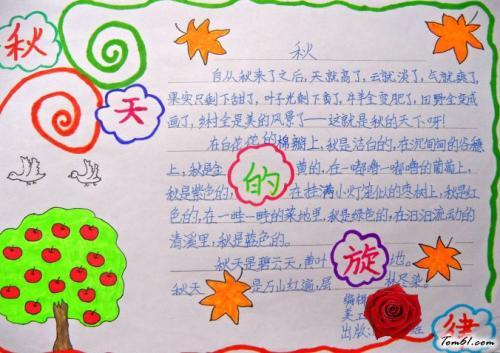 秋
天
的
旋
律
秋
自从秋来了之后,天就高了,云就淡了,气就爽了,
果实只剩下甜了,叶子光剩下黄了,牛羊全变肥了,田野全变成
画了,乡村全是美的风景了——这就是秋的天下呀!
在白花花的棉瓣上,秋是洁白的,在沉甸甸的谷穗
上,秋是金黄的,在一嘟噜一嘟噜的葡萄上,
秋是紫色的,在挂满小灯笼似的枣树上,秋是红
色的,在一畦一畦的菜地里,秋是绿色的,在汩汩流动的
清溪里,秋是蓝色的。
秋天是碧云天,黄叶地。
秋天是万山红遍,层林尽染。
编辑
美工
出版:
Tom61.com